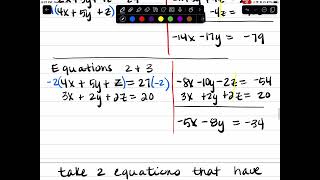 -2(4x + 5y + z) = 27(-2)
-14x - 17y = -79
Equations 2 + 3
3x + 2y + 2z = 20
-8x - 10y - 2z = -54
3x + 2y + 2z = 20
-5x - 8y = -34
take 2 equations that have